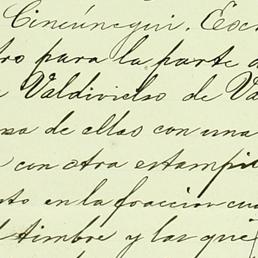 Cincúnegui. Esc
ro para la parte d
Valdivielso de Va
sa de ellas con una
con otra estampi
to en la fraccion cua
l timbre y las que